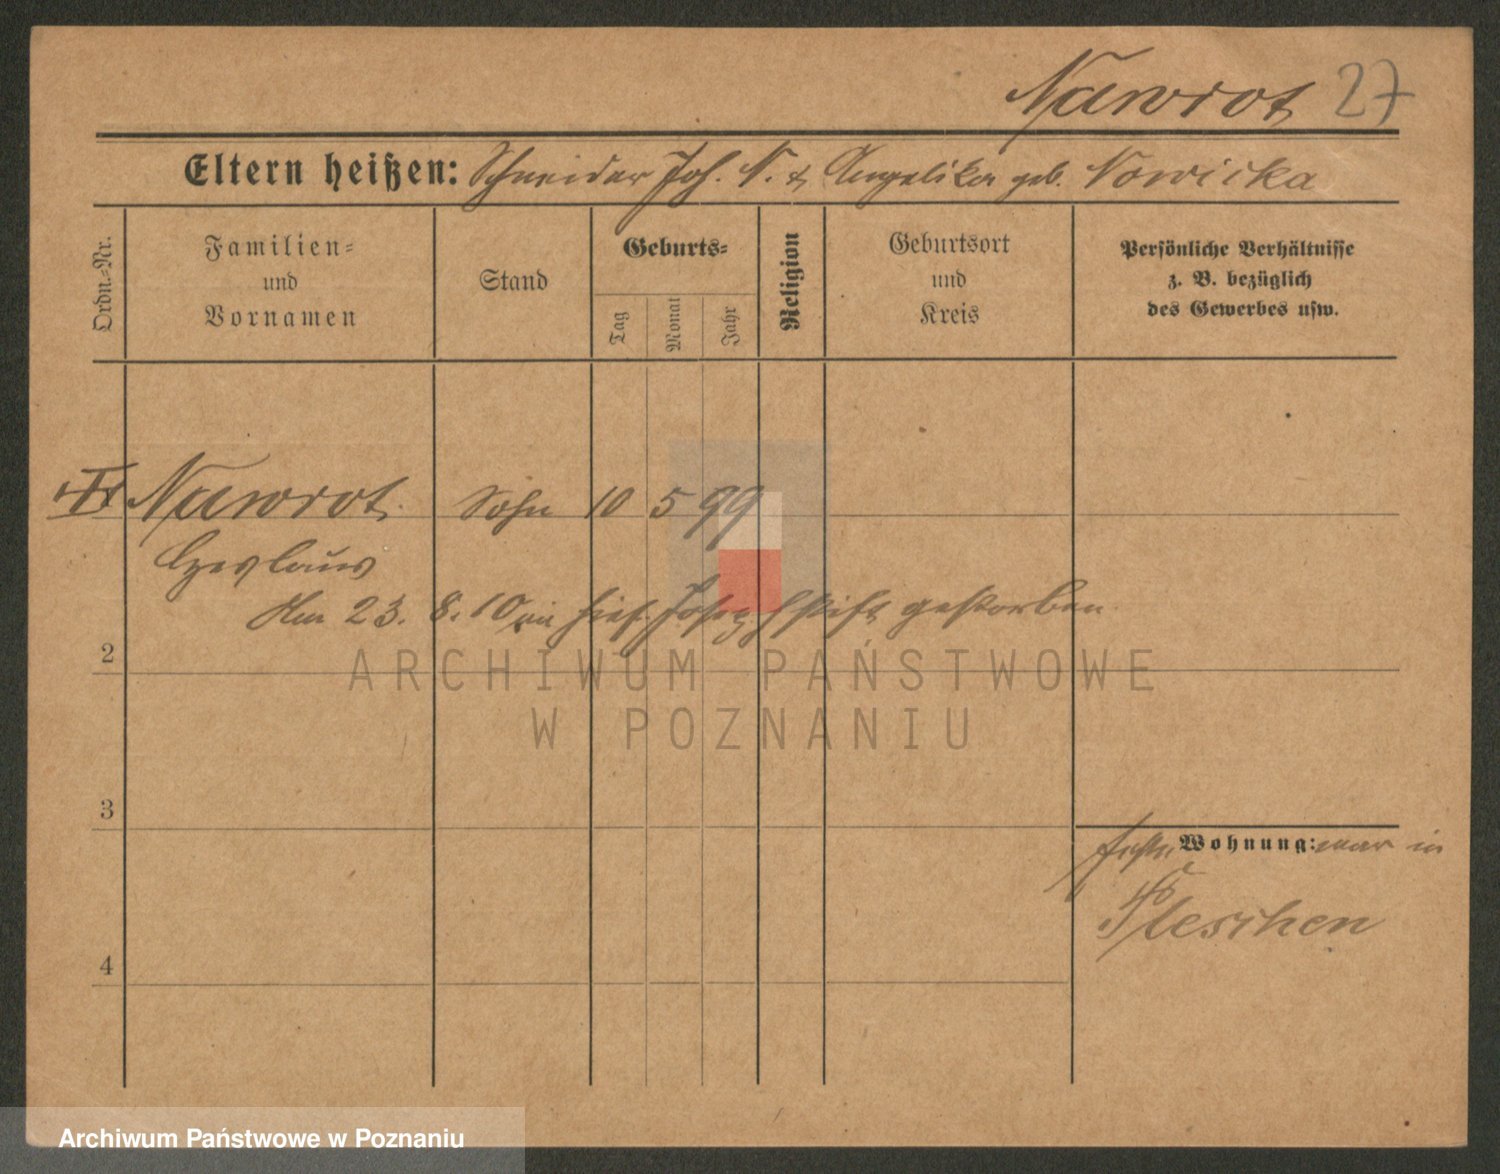 Nawrot 27
Eltern heißen: Schneider Joh. N. & Angelika geb. Nowicka
Ordn.-Nr.
Familien-
und
Vornamen
Stand
Geburts-
Tag
Monat
Jahr
Religion
Geburtsort
und
Kreis
Persönliche Verhältnisse
z. B. bezüglich
des Gewerbes usw.
Nawrot Sohn 10 5 99
Czeslaus
Am 23. 8. 10 im hies. Josephstift gestorben
2
ARCHIWUM PAŃSTWOWE
W POZNANIU
3
Wohnung: war in
Pleschen
4
Archiwum Państwowe w Poznaniu